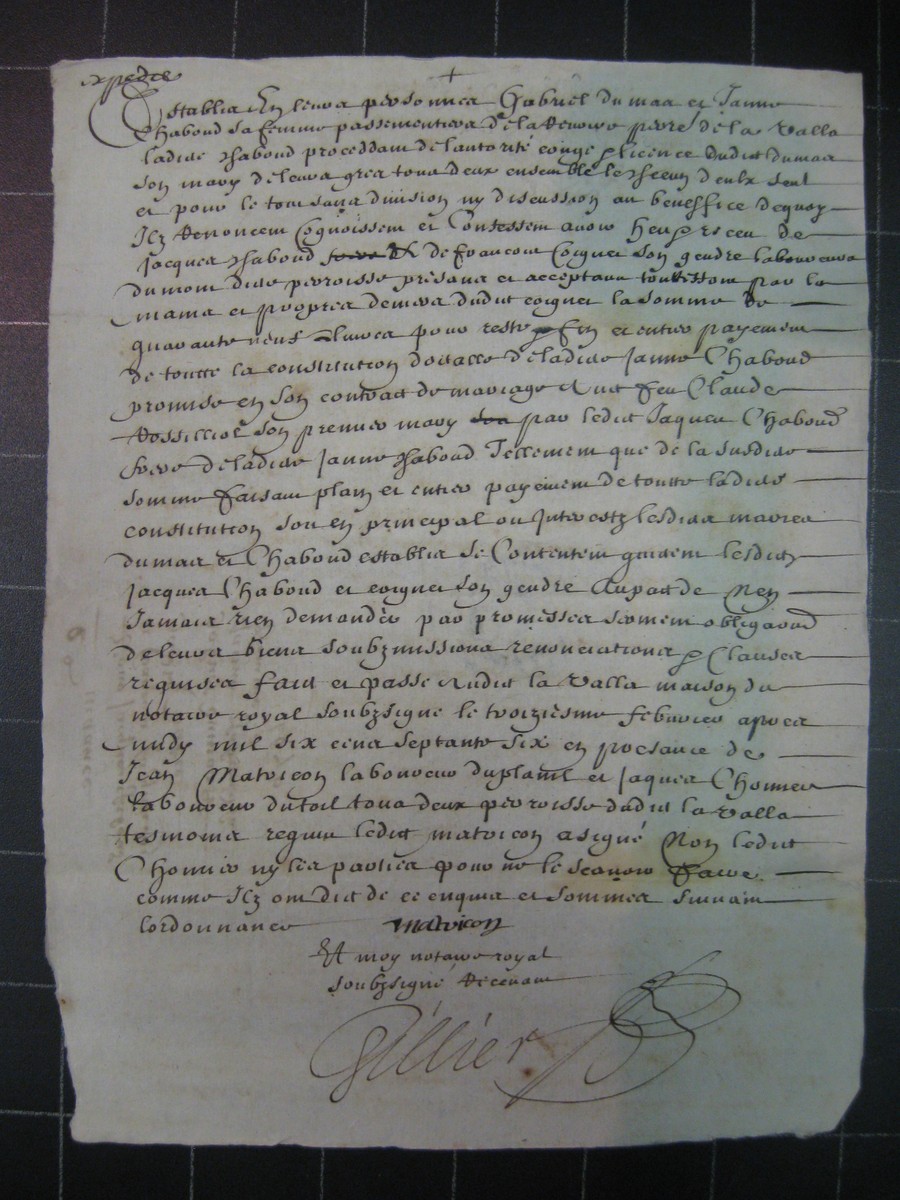 expedié
+
Establis En leurs personnes Gabriel dumas et Janne
Chaboud sa femme passementiers de la Renoire perre de la Valla
ladite Chaboud proceddant de lautorité congé & licence dudict dumas
son mary de leurs grés tous deux ensemble le Checun deulx seul
et pour le tout sans division ny discussion au beneffice dequoy
Ilz Renoncent Cognoissent et Confessent avoir heu & receu de
Jacques Chaboud de francois Coignet son gendre laboureurs
du mont dite perroisse présans et acceptans touttesfois par les
mains et propres deniers dudict coignet la somme de
quarante neuf livres pour reste fin et entier payement
de toutte la constitution dotalle de ladite Janne Chaboud
promise en son contract de mariage Avec feu Claude
Rossilliol son premier mary par ledict Jaques Chaboud
frere de ladite Janne Chaboud Tellement que de la susdite
somme faisant plain et entier payement de toutte ladite
constitution soit en principal ou Interestz lesdits mariés
dumas et Chaboud establis se Contentent quittent lesdits
Jacques Chaboud et coignet son gendre Avec pact de Nen
Jamais rien demander par promesses serment obligaond
de leurs biens soubzmissions renonciations & Clauses
requises faict et passé Audict la Valla maison du
notaire royal soubzsigné le treiziesme febvrier apres
midy mil six cens septante six en presance de
Jean Matricon laboureur du planil et Jaques Chomier
laboureur du toil tous deux perroisse dudict la Valla
tesmoins requis ledict matricon a signé Non ledict
Chomier ny les parties pour ne le scavoir faire
comme Ilz ont dict de ce enquis et sommés suivant
lordonnance matricon
Et moy notaire royal
soubzsigné Recevant
Gillier